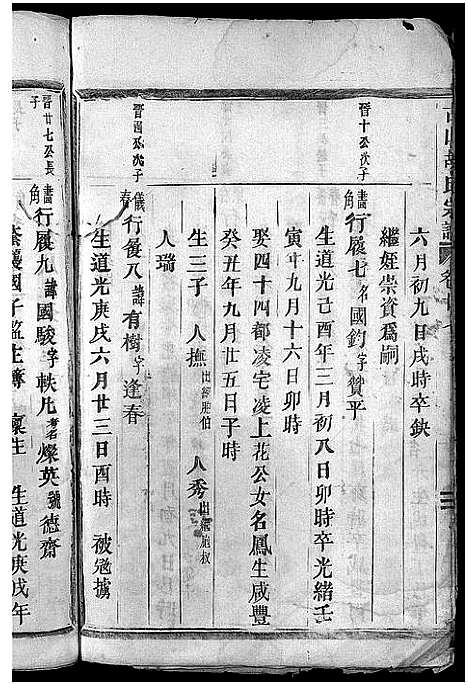 六月初九日戌時卒缺
繼姪崇資爲嗣
晉十公次子
畫角行履七名國鈞字贊平
生道光己酉年三月初八日卯時卒光緒壬
寅年九月十六日卯時
娶四十四都凌宅凌上花公女名鳳生咸豐
癸丑年九月廿五日子時
生三子 人撫出繼胞伯 人秀出繼胞叔
人瑞
晉四公次子
儀春行履八諱有樹字逢春
生道光庚戌六月廿三日酉時 被寇擄
晉廿七公長子
畫角行履九諱國駿字軼凡考名燦英號德齋
生道光庚戌年